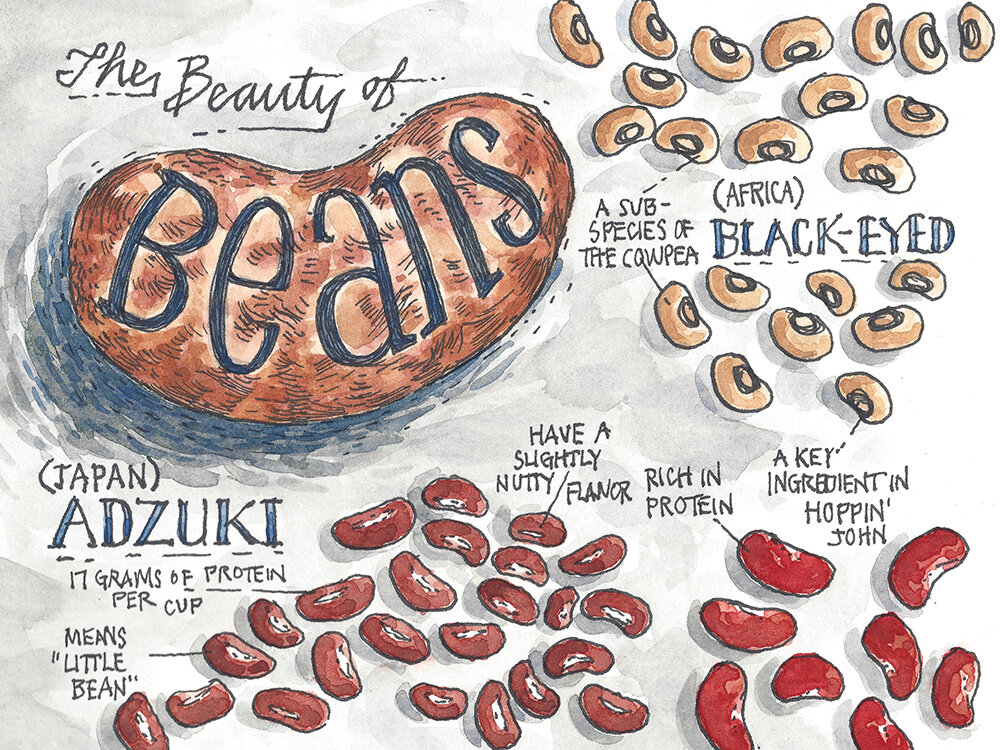 The Beauty of
Beans
(AFRICA)
BLACK-EYED
A SUB-
SPECIES OF
THE COWPEA
A KEY
INGREDIENT IN
HOPPIN'
JOHN
(JAPAN)
ADZUKI
17 GRAMS OF PROTEIN
PER CUP
MEANS
"LITTLE
BEAN"
HAVE A
SLIGHTLY
NUTTY FLAVOR
RICH IN
PROTEIN